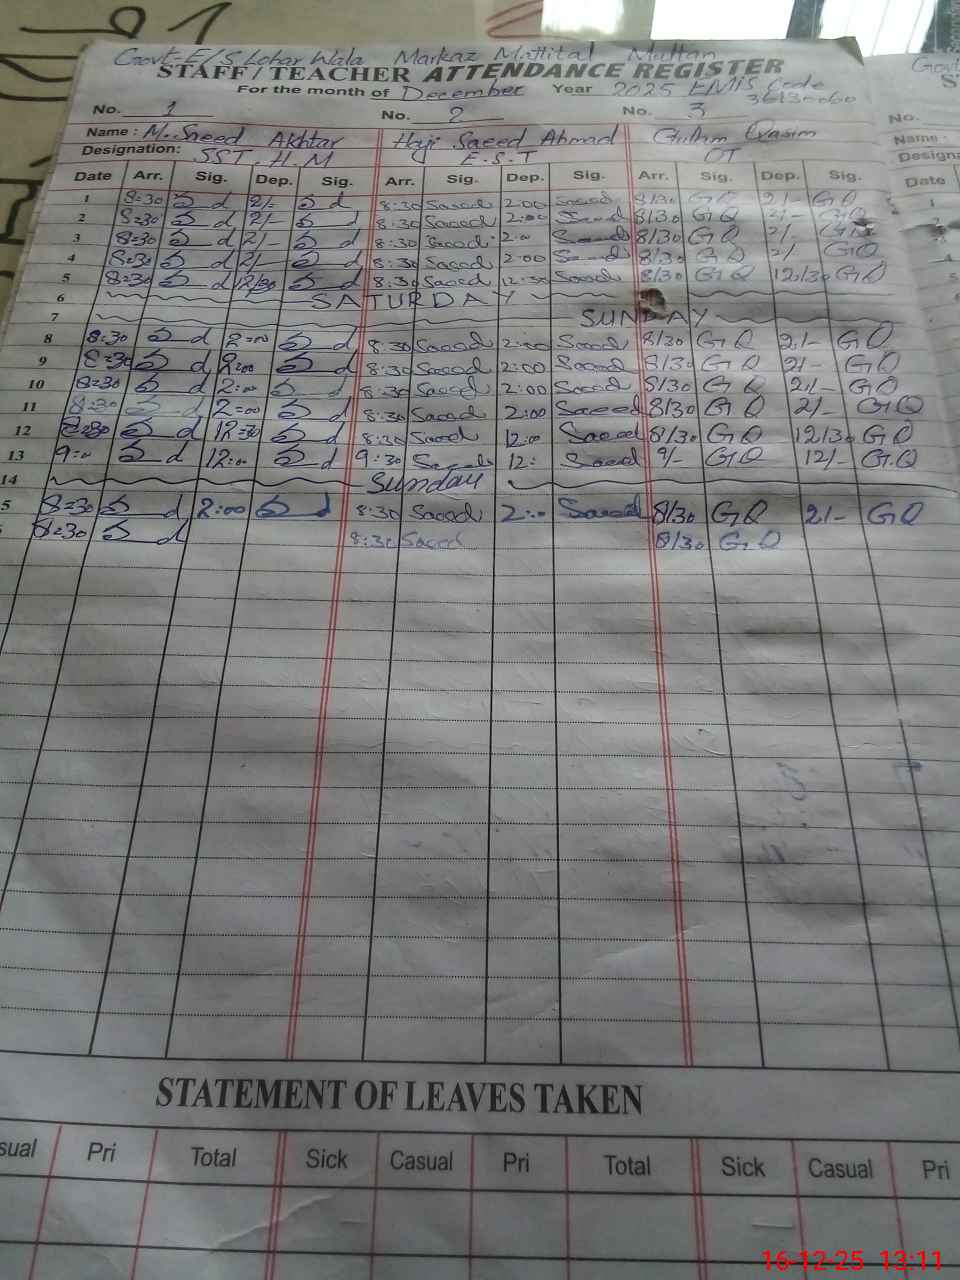 Govt. E/S Lohar Wala Markaz Mattital Multan
STAFF / TEACHER ATTENDANCE REGISTER
For the month of December Year 2025 EMIS Code
36130060
No. 1 No. 2 No. 3 No.
Name : M. Saeed Akhtar Haji Saeed Ahmad Ghulam Qasim Name :
Designation: SST. H.M E.S.T OT
Date Arr. Sig. Dep. Sig. Arr. Sig. Dep. Sig. Arr. Sig. Dep. Sig. Date
1 8=30 2/= 8:30 Saeed 2:00 Saeed 8/30 GQ 2/- GQ 1
2 8=30 2/- 8:30 Saeed 2:00 Saeed 8/30 GQ 2/- GQ 2
3 8=30 2/- 8:30 Saeed 2:00 Saeed 8/30 GQ 2/- GQ
4 8=30 2/- 8:30 Saeed 2:00 Saeed 8/30 GQ 2/ GQ 4
5 8=30 12/30 8:30 Saeed 12:30 Saeed 8/30 GQ 12/30 GQ
6 SATURDAY
7 SUNDAY
8 8:30 2=00 8:30 Saeed 2:00 Saeed 8/30 GQ 2/- GQ
9 8=30 2:00 8:30 Saeed 2:00 Saeed 8/30 GQ 2/- GQ
10 8=30 2:00 8:30 Saeed 2:00 Saeed 8/30 GQ 2/- GQ
11 8:30 2=00 8:30 Saeed 2:00 Saeed 8/30 GQ 2/- G.Q
12 8=30 12=30 8:30 Saeed 12:00 Saeed 8/30 GQ 12/30 GQ
13 9:00 12:00 9:30 Saeed 12: Saeed 9/- GQ 12/- G.Q
14 Sunday
5 8=30 2:00 8:30 Saeed 2:00 Saeed 8/30 GQ 2/- GQ
8=30 8:30 Saeed 8/30 GQ
STATEMENT OF LEAVES TAKEN
sual Pri Total Sick Casual Pri Total Sick Casual Pri
16-12-25 13:11